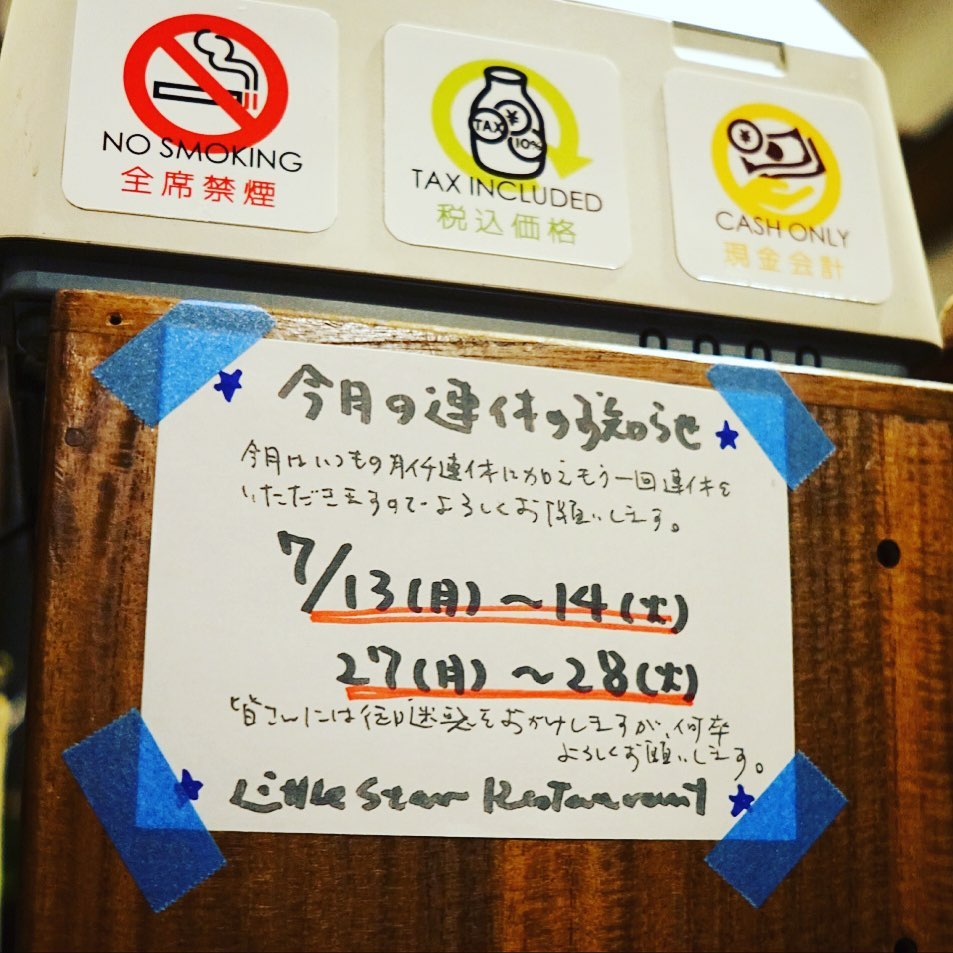 NO SMOKING
全席禁煙
TAX ¥ 10%
TAX INCLUDED
税込価格
¥
CASH ONLY
現金会計
今月の連休のお知らせ
今月はいつもの月イチ連休に加えもう一回連休を
いただきますのでよろしくお願いします。
7/13(月)〜14(火)
27(月)〜28(火)
皆さんには御迷惑をおかけしますが、何卒
よろしくお願いします。
Little Star Restaurant